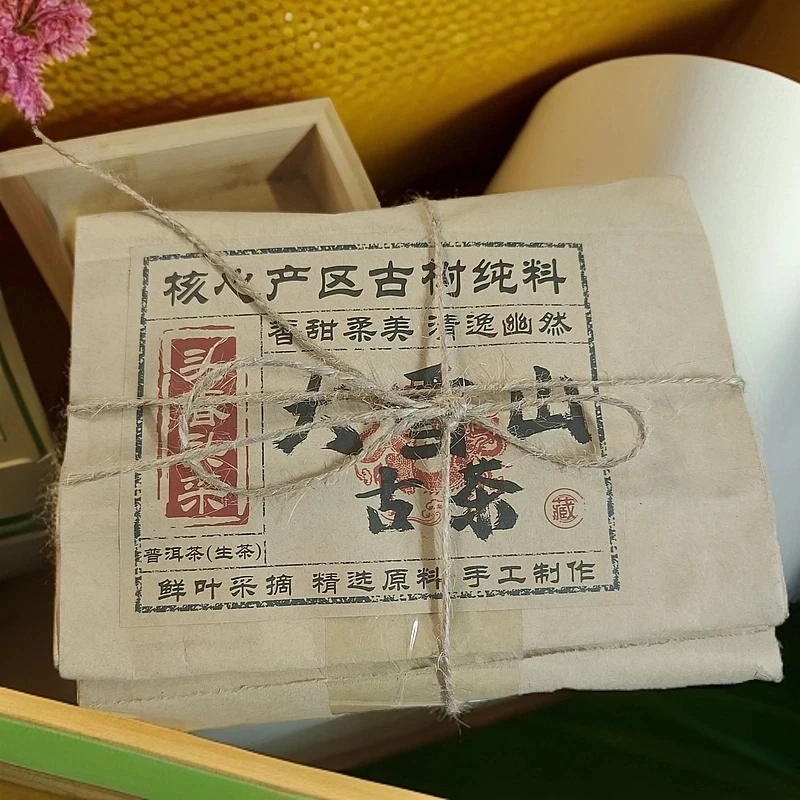 核心产区古树纯料
香甜柔美 清逸幽然
头春头采
大雪山
古茶
藏
普洱茶(生茶)
鲜叶采摘 精选原料 手工制作